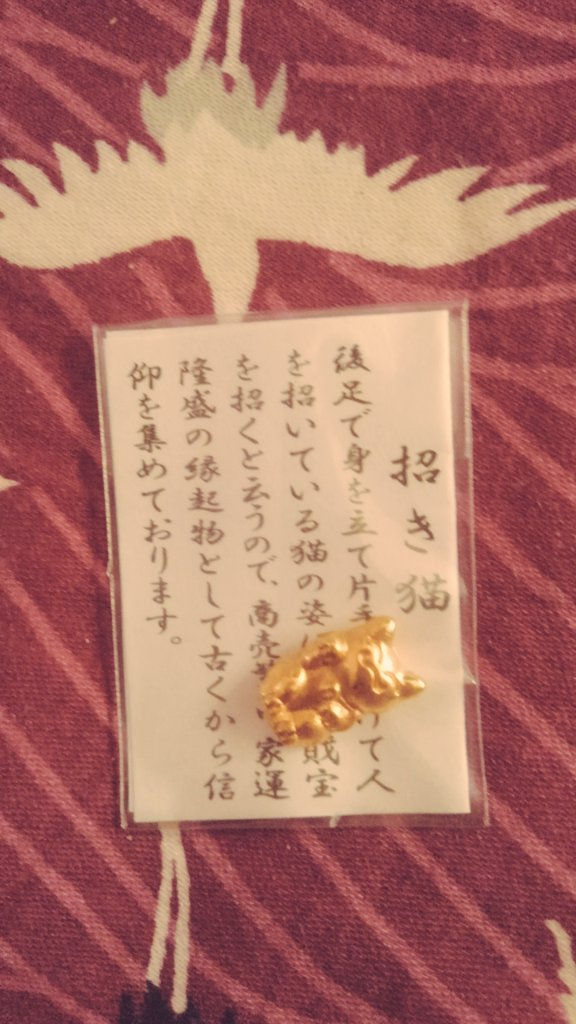 招き猫
後足で身を立て片手 けて人
を招いている猫の姿 賎宝
を招くと云うので、商売 家運
隆盛の縁起物として古くから信
仰を集めております。